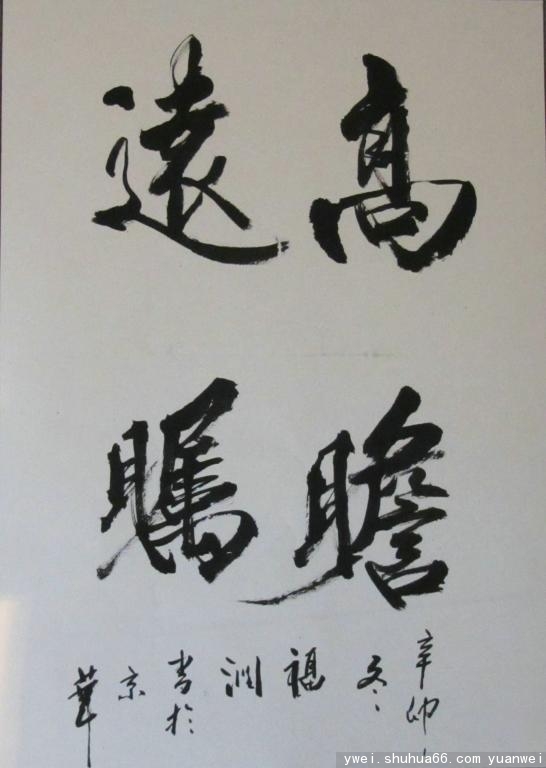 高瞻
遠矚
辛卯
冬
福
润
书於
京
華
ywei.shuhua66.com yuanwei